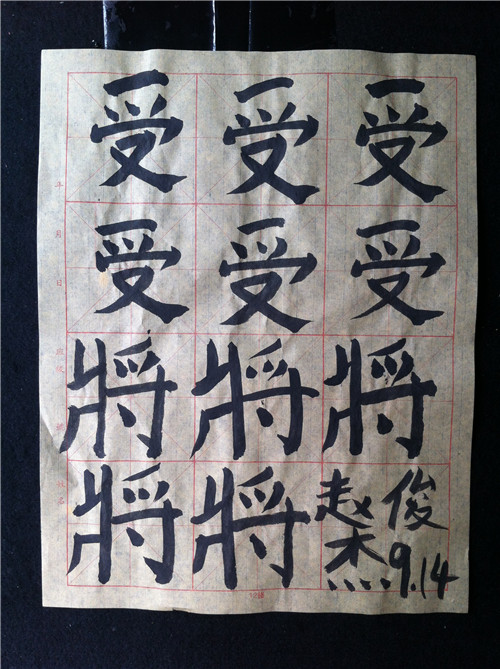 受受受
受受受
將將將
將將
赵俊
杰9.14
年
月
日
姓名